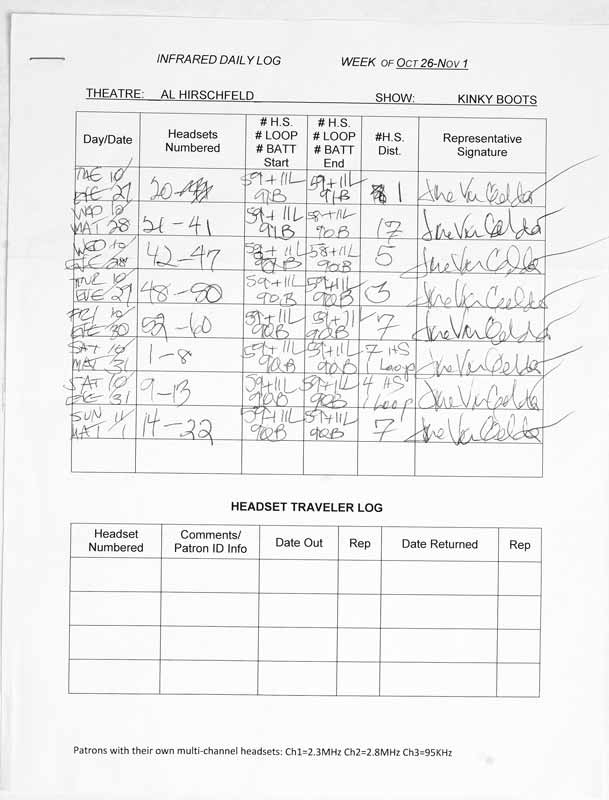 INFRARED DAILY LOG WEEK OF OCT 26-NOV 1
THEATRE: AL HIRSCHFELD SHOW: KINKY BOOTS
Day/Date
Headsets
Numbered
# H.S.
# LOOP
# BATT
Start
# H.S.
# LOOP
# BATT
End
#H.S.
Dist.
Representative
Signature
TUE 10/
EVE 27
20-
59+11L
91B
59+11L
91B
1
WED 10/
MAT 28
21-41
59+11L
91B
58+11L
90B
17
WED 10/
EVE 28
42-47
58+11L
90B
58+11L
90B
5
EVE 29
48-50
59+11L
90B
59+11L
90B
3
FRI 10/
EVE 30
52-60
59+11L
90B
59+11L
90B
7
SAT 10/
MAT 31
1-8
59+11L
90B
59+11L
90B
7 HS
1 Loop
SAT 10/
EVE 31
9-13
59+11L
90B
59+11L
90B
4 HS
1 Loop
SUN 11/
MAT 1
14-22
59+11L
90B
59+11L
90B
7
HEADSET TRAVELER LOG
Headset
Numbered
Comments/
Patron ID Info
Date Out
Rep
Date Returned
Rep
Patrons with their own multi-channel headsets: Ch1=2.3MHz Ch2=2.8MHz Ch3=95KHz